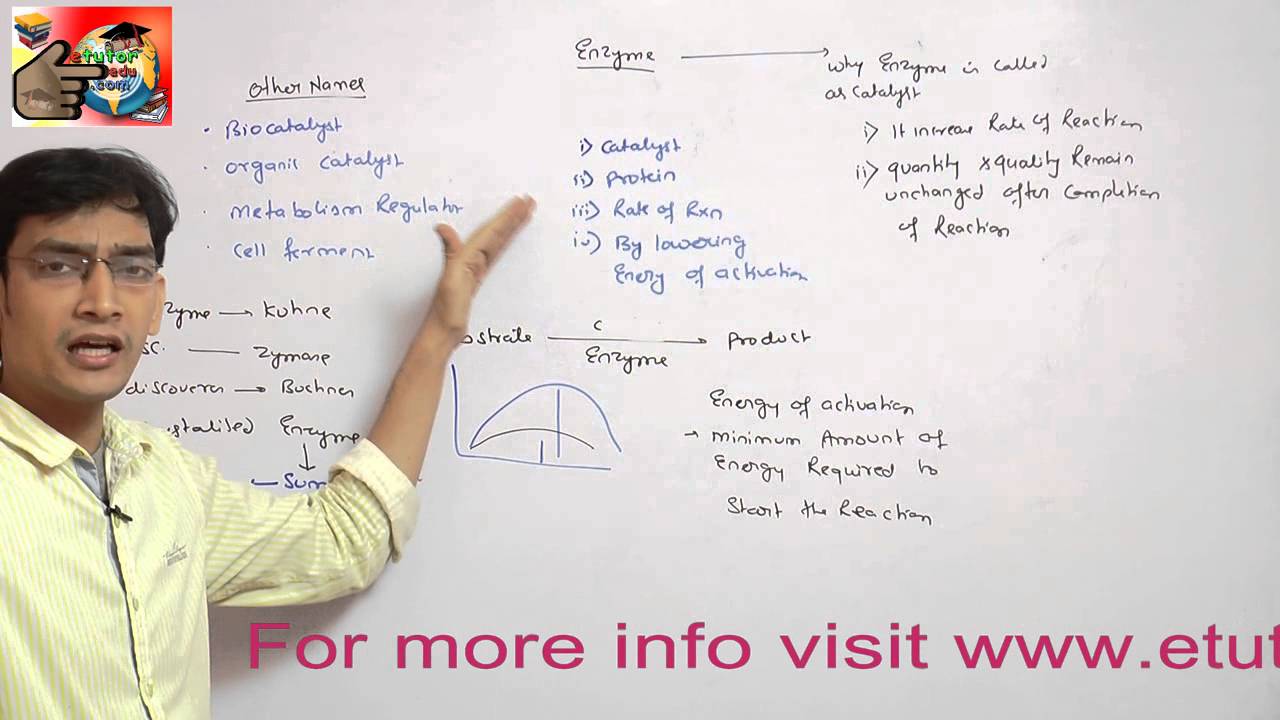 etutor
edu
.com
Other Names
• Biocatalyst
• Organic catalyst
• Metabolism Regulator
• Cell ferment
zyme → Kuhne
sc. — Zymase
discoverer → Buchner
stalised Enzyme
↓
— Sum
Enzyme →
why Enzyme is called
as catalyst
i) It increase Rate of Reaction
ii) quantity & quality Remain
unchanged after Completion
of Reaction
i) Catalyst
ii) Protein
iii) Rate of Rxn
iv) By lowering
Energy of activation
bstrate → Product
C
Enzyme
Energy of activation
→ minimum Amount of
Energy Required to
Start the Reaction
For more info visit www.etut